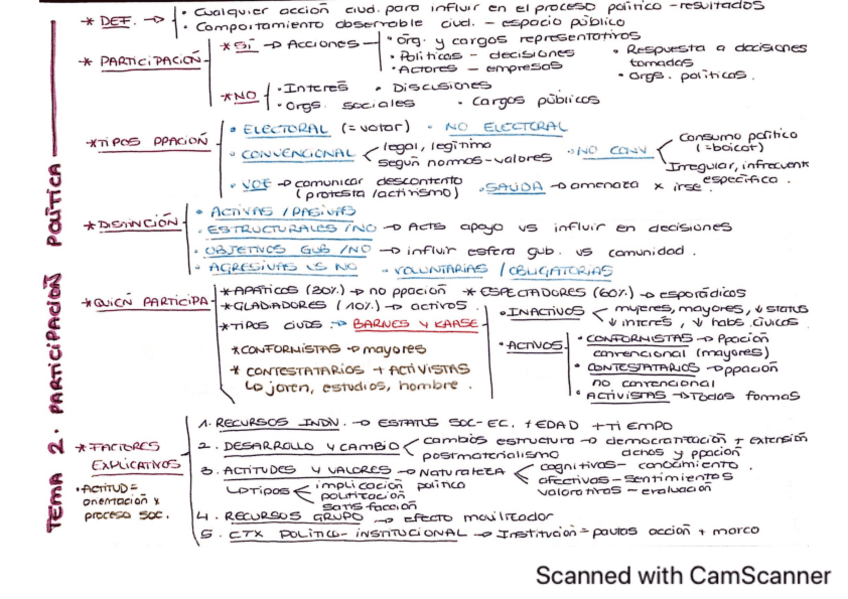 TEMA 2. PARTICIPACIÓN POLÍTICA
* DEF. → · Cualquier acción ciud. para influir en el proceso político - resultados
· Comportamiento observable ciud. - espacio público
* PARTICIPACIÓN
* SÍ → Acciones
· Org. y cargos representativos
· Políticas - decisiones
· Actores - empresas
· Respuesta a decisiones tomadas
· Orgs. políticas.
* NO · Interés · Discusiones
· Orgs. sociales · Cargos públicos
* TIPOS PPACIÓN
· ELECTORAL (= votar) · NO ELECTORAL
· CONVENCIONAL legal, legítimo
según normas-valores
· NO CONV Consumo político
(=boicot)
Irregular, infrecuente
específica.
· VOZ → comunicar descontento
(protesta/activismo)
· SALIDA → amenaza x irse
* DISTINCIÓN
· ACTIVAS / PASIVAS
· ESTRUCTURALES / NO → Acts apoyo vs influir en decisiones
· OBJETIVOS GUB / NO → influir esfera gub. vs comunidad.
· AGRESIVAS VS NO · VOLUNTARIAS / OBLIGATORIAS
* QUIÉN PARTICIPA
* APÁTICOS (30%) → no ppación * ESPECTADORES (60%) → esporádicos
* GLADIADORES (10%) → activos.
* TIPOS CIUDS → BARNES Y KAASE
* CONFORMISTAS → mayores
* CONTESTATARIOS + ACTIVISTAS
↳ joven, estudios, hombre.
· INACTIVOS mujeres, mayores, ↓ status
↓ interés, ↓ habs. cívicos
· ACTIVOS
· CONFORMISTAS → Ppación
convencional (mayores)
· CONTESTATARIOS → ppación
no convencional
· ACTIVISTAS → Todas formas
* FACTORES
EXPLICATIVOS
· ACTITUD =
orientación x
proceso soc.
1. RECURSOS INDIV. → ESTATUS SOC-EC. + EDAD + TIEMPO
2. DESARROLLO Y CAMBIO cambios estructura → democratización + extensión
dchos y ppación
postmaterialismo
3. ACTITUDES Y VALORES → NATURALEZA cognitivas - conocimiento.
afectivas - sentimientos
valorativas - evaluación
↳ TIPOS implicación política
politización
satisfacción
4. RECURSOS GRUPO → efecto movilizador
5. CTX POLÍTICO-INSTITUCIONAL → Institución = pautas acción + marco
Scanned with CamScanner